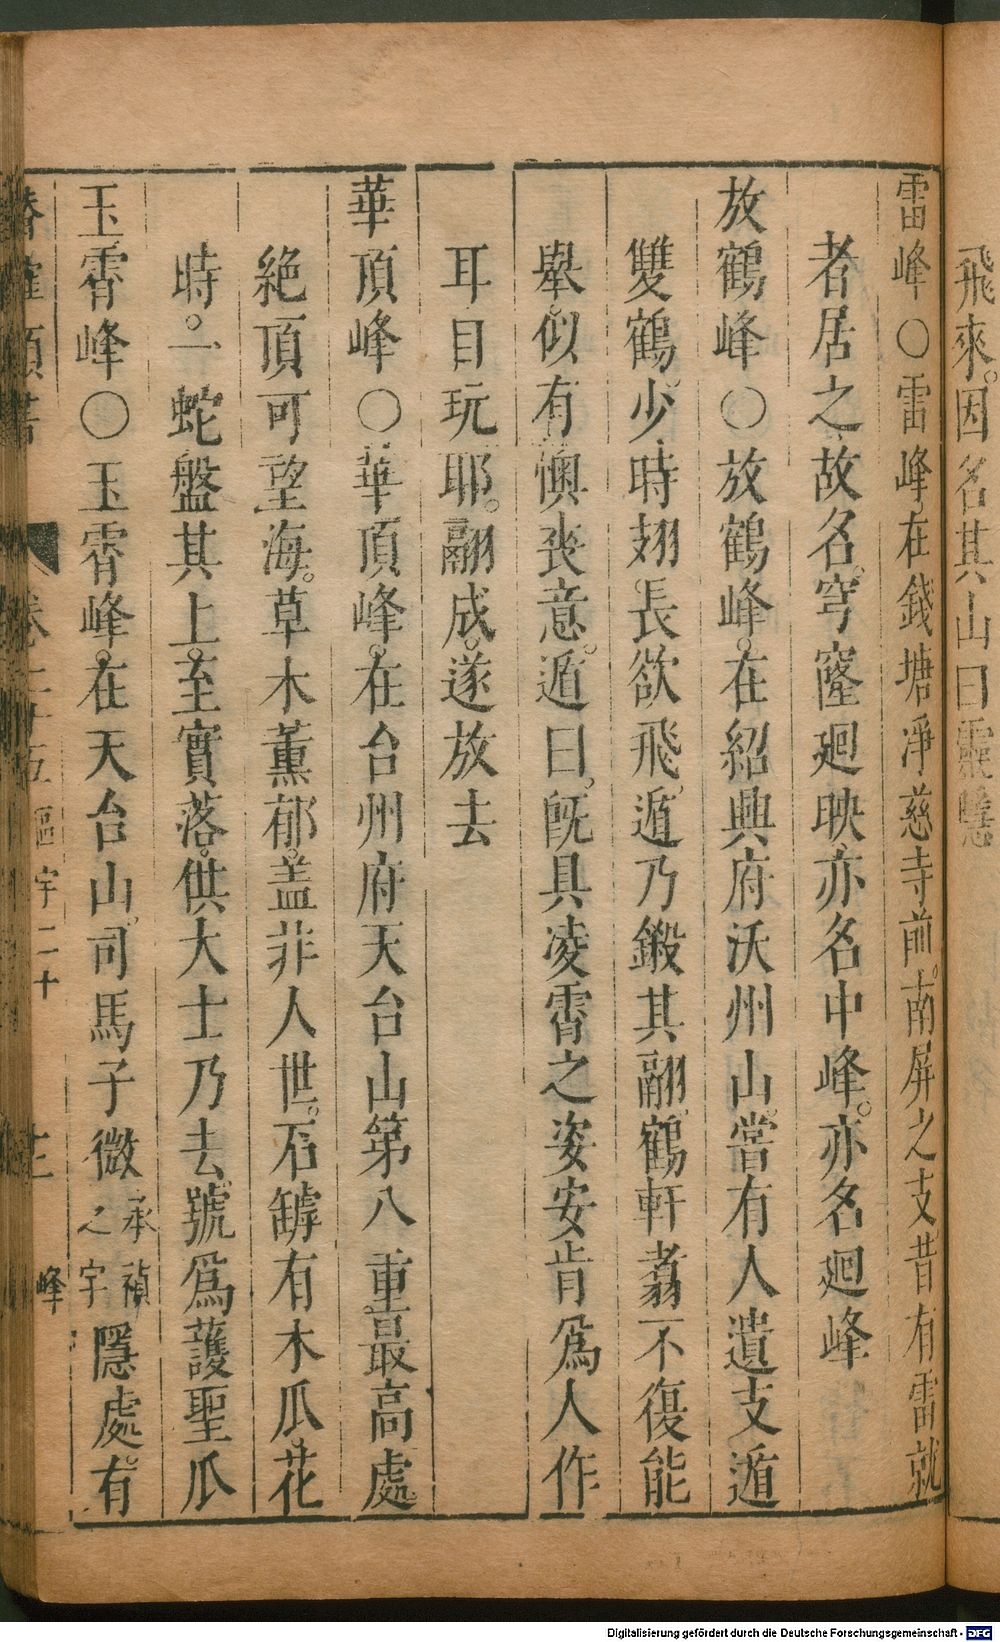 飛來。因名其山曰靈隱
雷峰○雷峰。在錢塘凈慈寺前。南屏之支。昔有雷就
者居之。故名。穹窿廻映。亦名中峰。亦名廻峰
放鶴峰○放鶴峰。在紹興府沃州山。嘗有人遺支遁
雙鶴。少時翅長欲飛。遁乃鍛其翮。鶴軒翥不復能
舉。似有懊喪意。遁曰。旣具凌霄之姿。安肯爲人作
耳目玩耶。翮成。遂放去
華頂峰○華頂峰。在台州府天台山第八重。最高處。
絶頂可望海。草木薰郁。盖非人世。石罅有木瓜。花
時。一蛇盤其上。至實落。供大士乃去。號爲護聖瓜
玉霄峰○玉霄峰。在天台山。司馬子微承禎之字隱處。有
卷二十五 區宇二十 峰
Digitalisierung gefördert durch die Deutsche Forschungsgemeinschaft - DFG